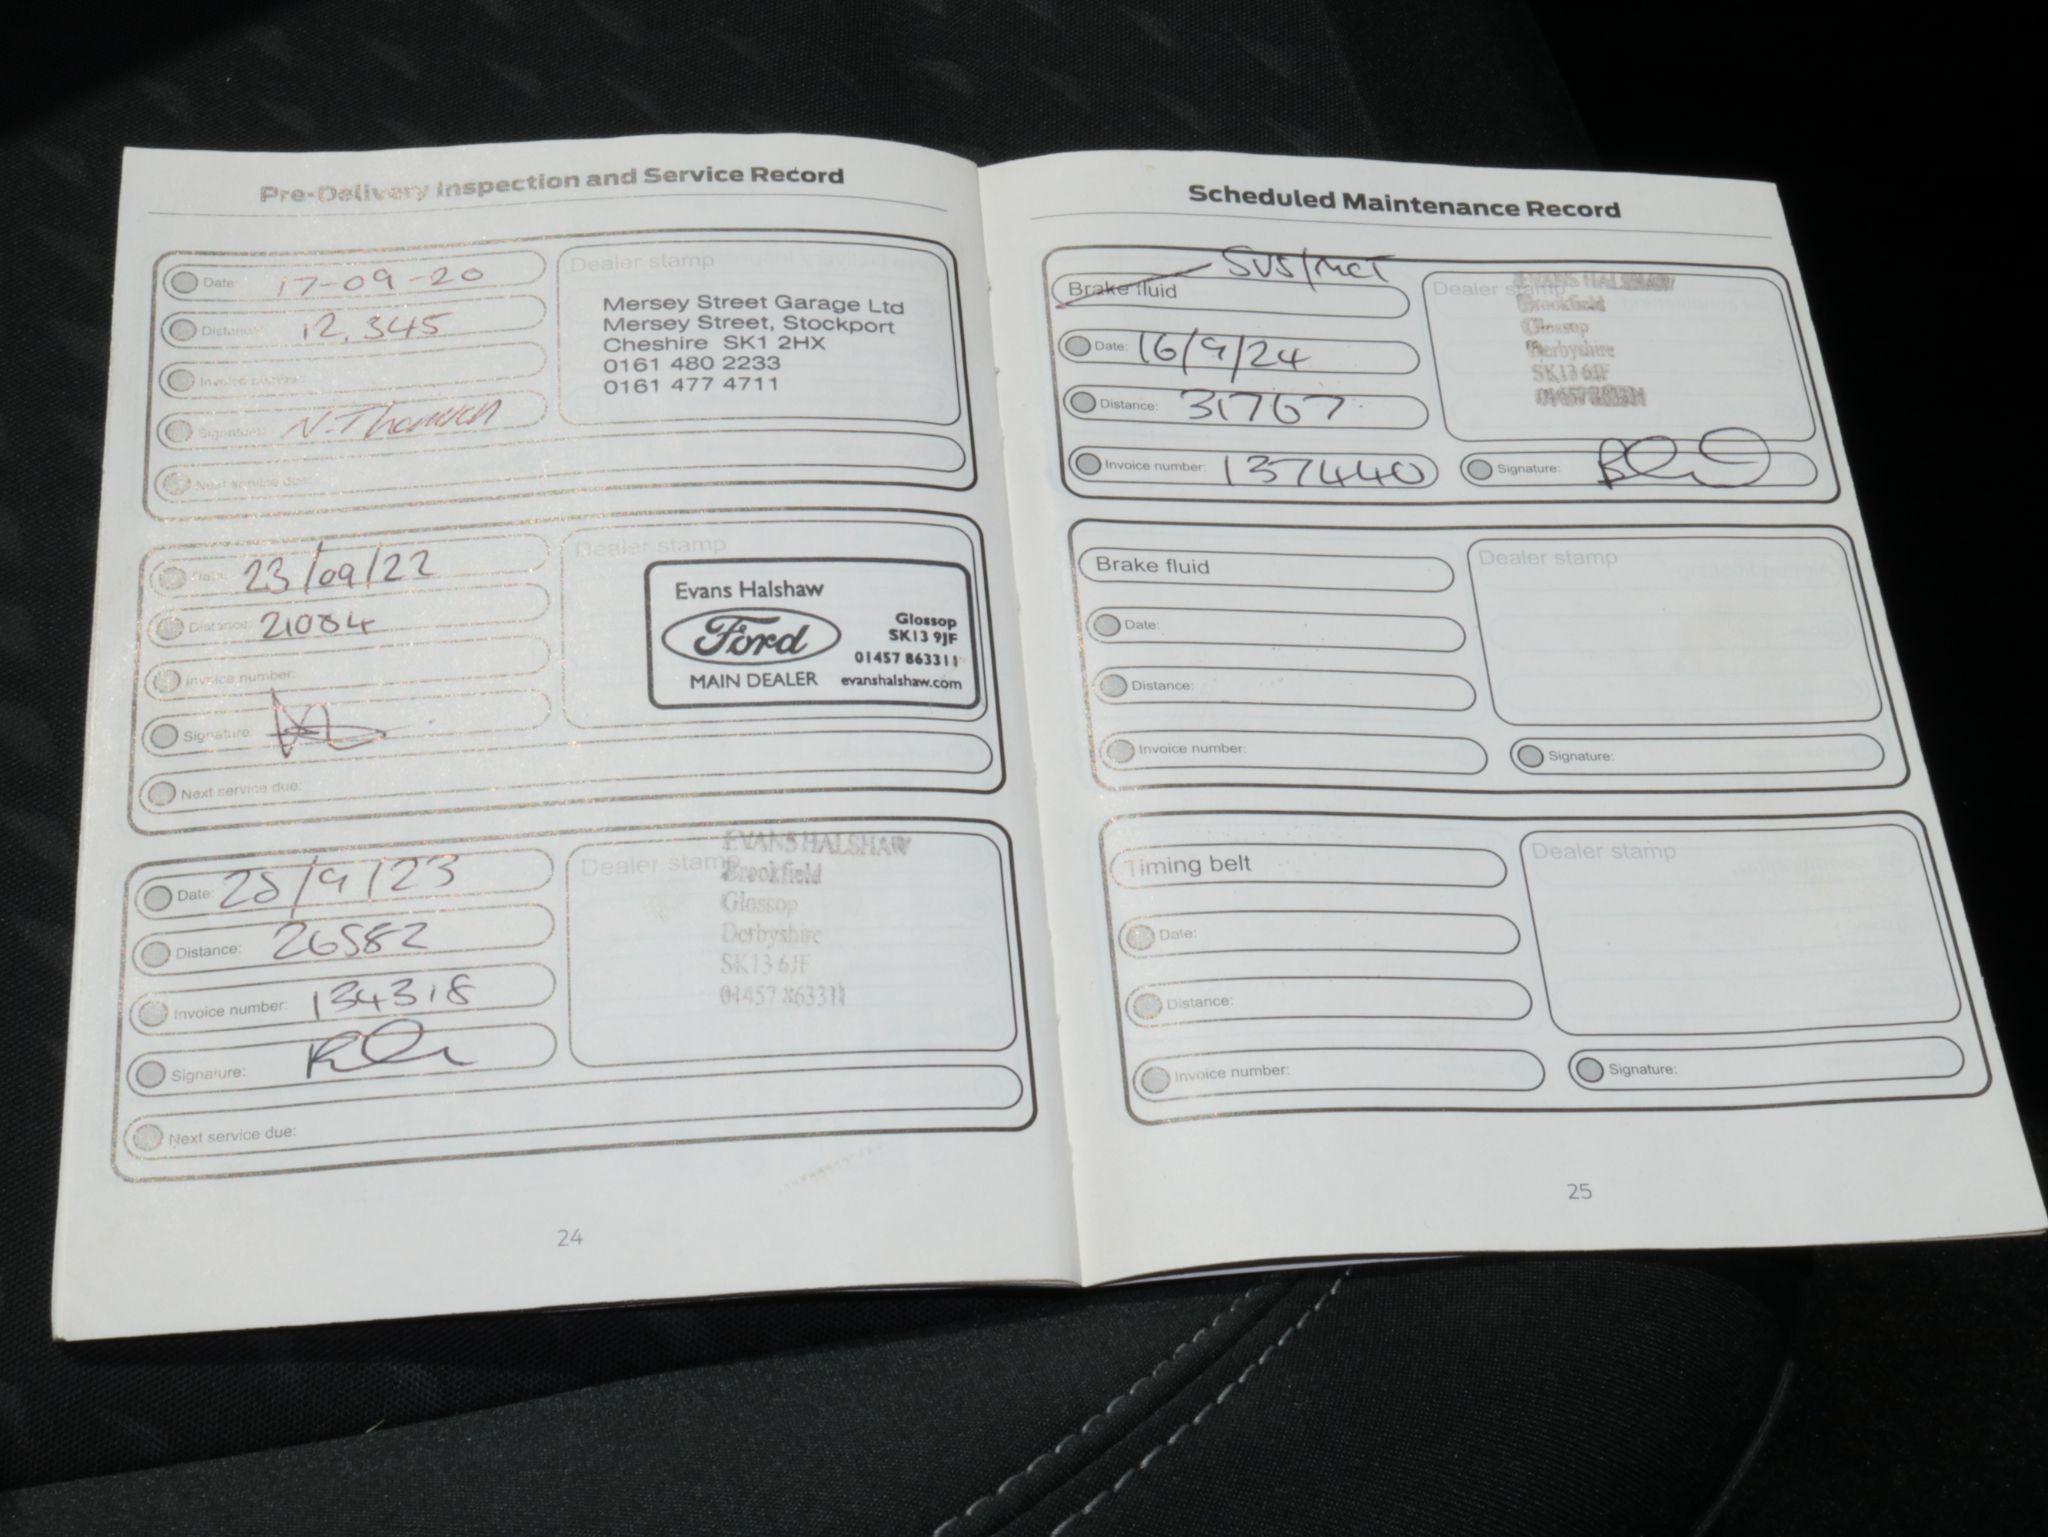 Pre-Delivery Inspection and Service Record
Date: 17-09-20
Distance: 12,345
Invoice number:
Signature: N. Thomson
Next service due:
Dealer stamp
Mersey Street Garage Ltd
Mersey Street, Stockport
Cheshire SK1 2HX
0161 480 2233
0161 477 4711
Date: 23/09/22
Distance: 21084
Invoice number:
Signature:
Next service due:
Dealer stamp
Evans Halshaw
Ford
MAIN DEALER
Glossop
SK13 9JF
01457 863311
evanshalshaw.com
Date: 28/9/23
Distance: 26582
Invoice number: 134318
Signature:
Next service due:
Dealer stamp
EVANS HALSHAW
Brookfield
Glossop
Derbyshire
SK13 6JF
01457 863311
24
Scheduled Maintenance Record
SVS/MOT
Brake fluid
Date: 16/9/24
Distance: 31767
Invoice number: 137440
Dealer stamp
EVANS HALSHAW
Brookfield
Glossop
Derbyshire
SK13 6JF
01457 863311
Signature:
Brake fluid
Date:
Distance:
Invoice number:
Dealer stamp
Signature:
Timing belt
Date:
Distance:
Invoice number:
Dealer stamp
Signature:
25